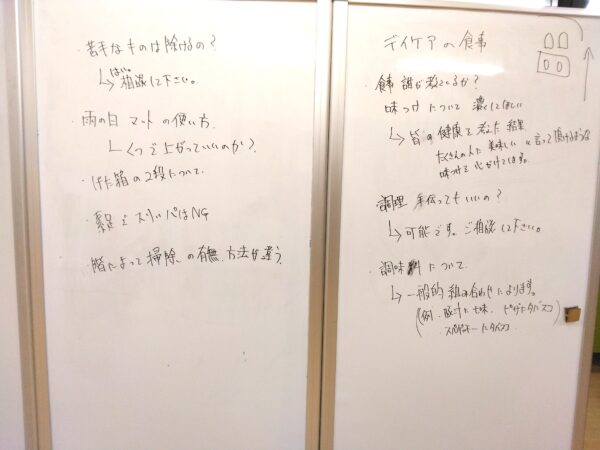 ・苦手なものは除けるの?
↳はい。相談して下さい。
・雨の日 マットの使い方.
↳くつで上がっていいのか?
・げた箱の2段について.
・素足でスリッパはNG
・階によって掃除の有無.方法が違う.
デイケアの食事
・食事 誰が考えているか?
味つけについて 濃くしてほしい
↳皆の健康を考えた結果
たくさんの人に美味しいと言って頂けるような
味つけを心がけてます。
・調理 手伝ってもいいの?
↳可能です。ご相談して下さい。
・調味料について.
↳一般的組み合わせによります。
(例.豚汁に七味、ピザにタバスコ)